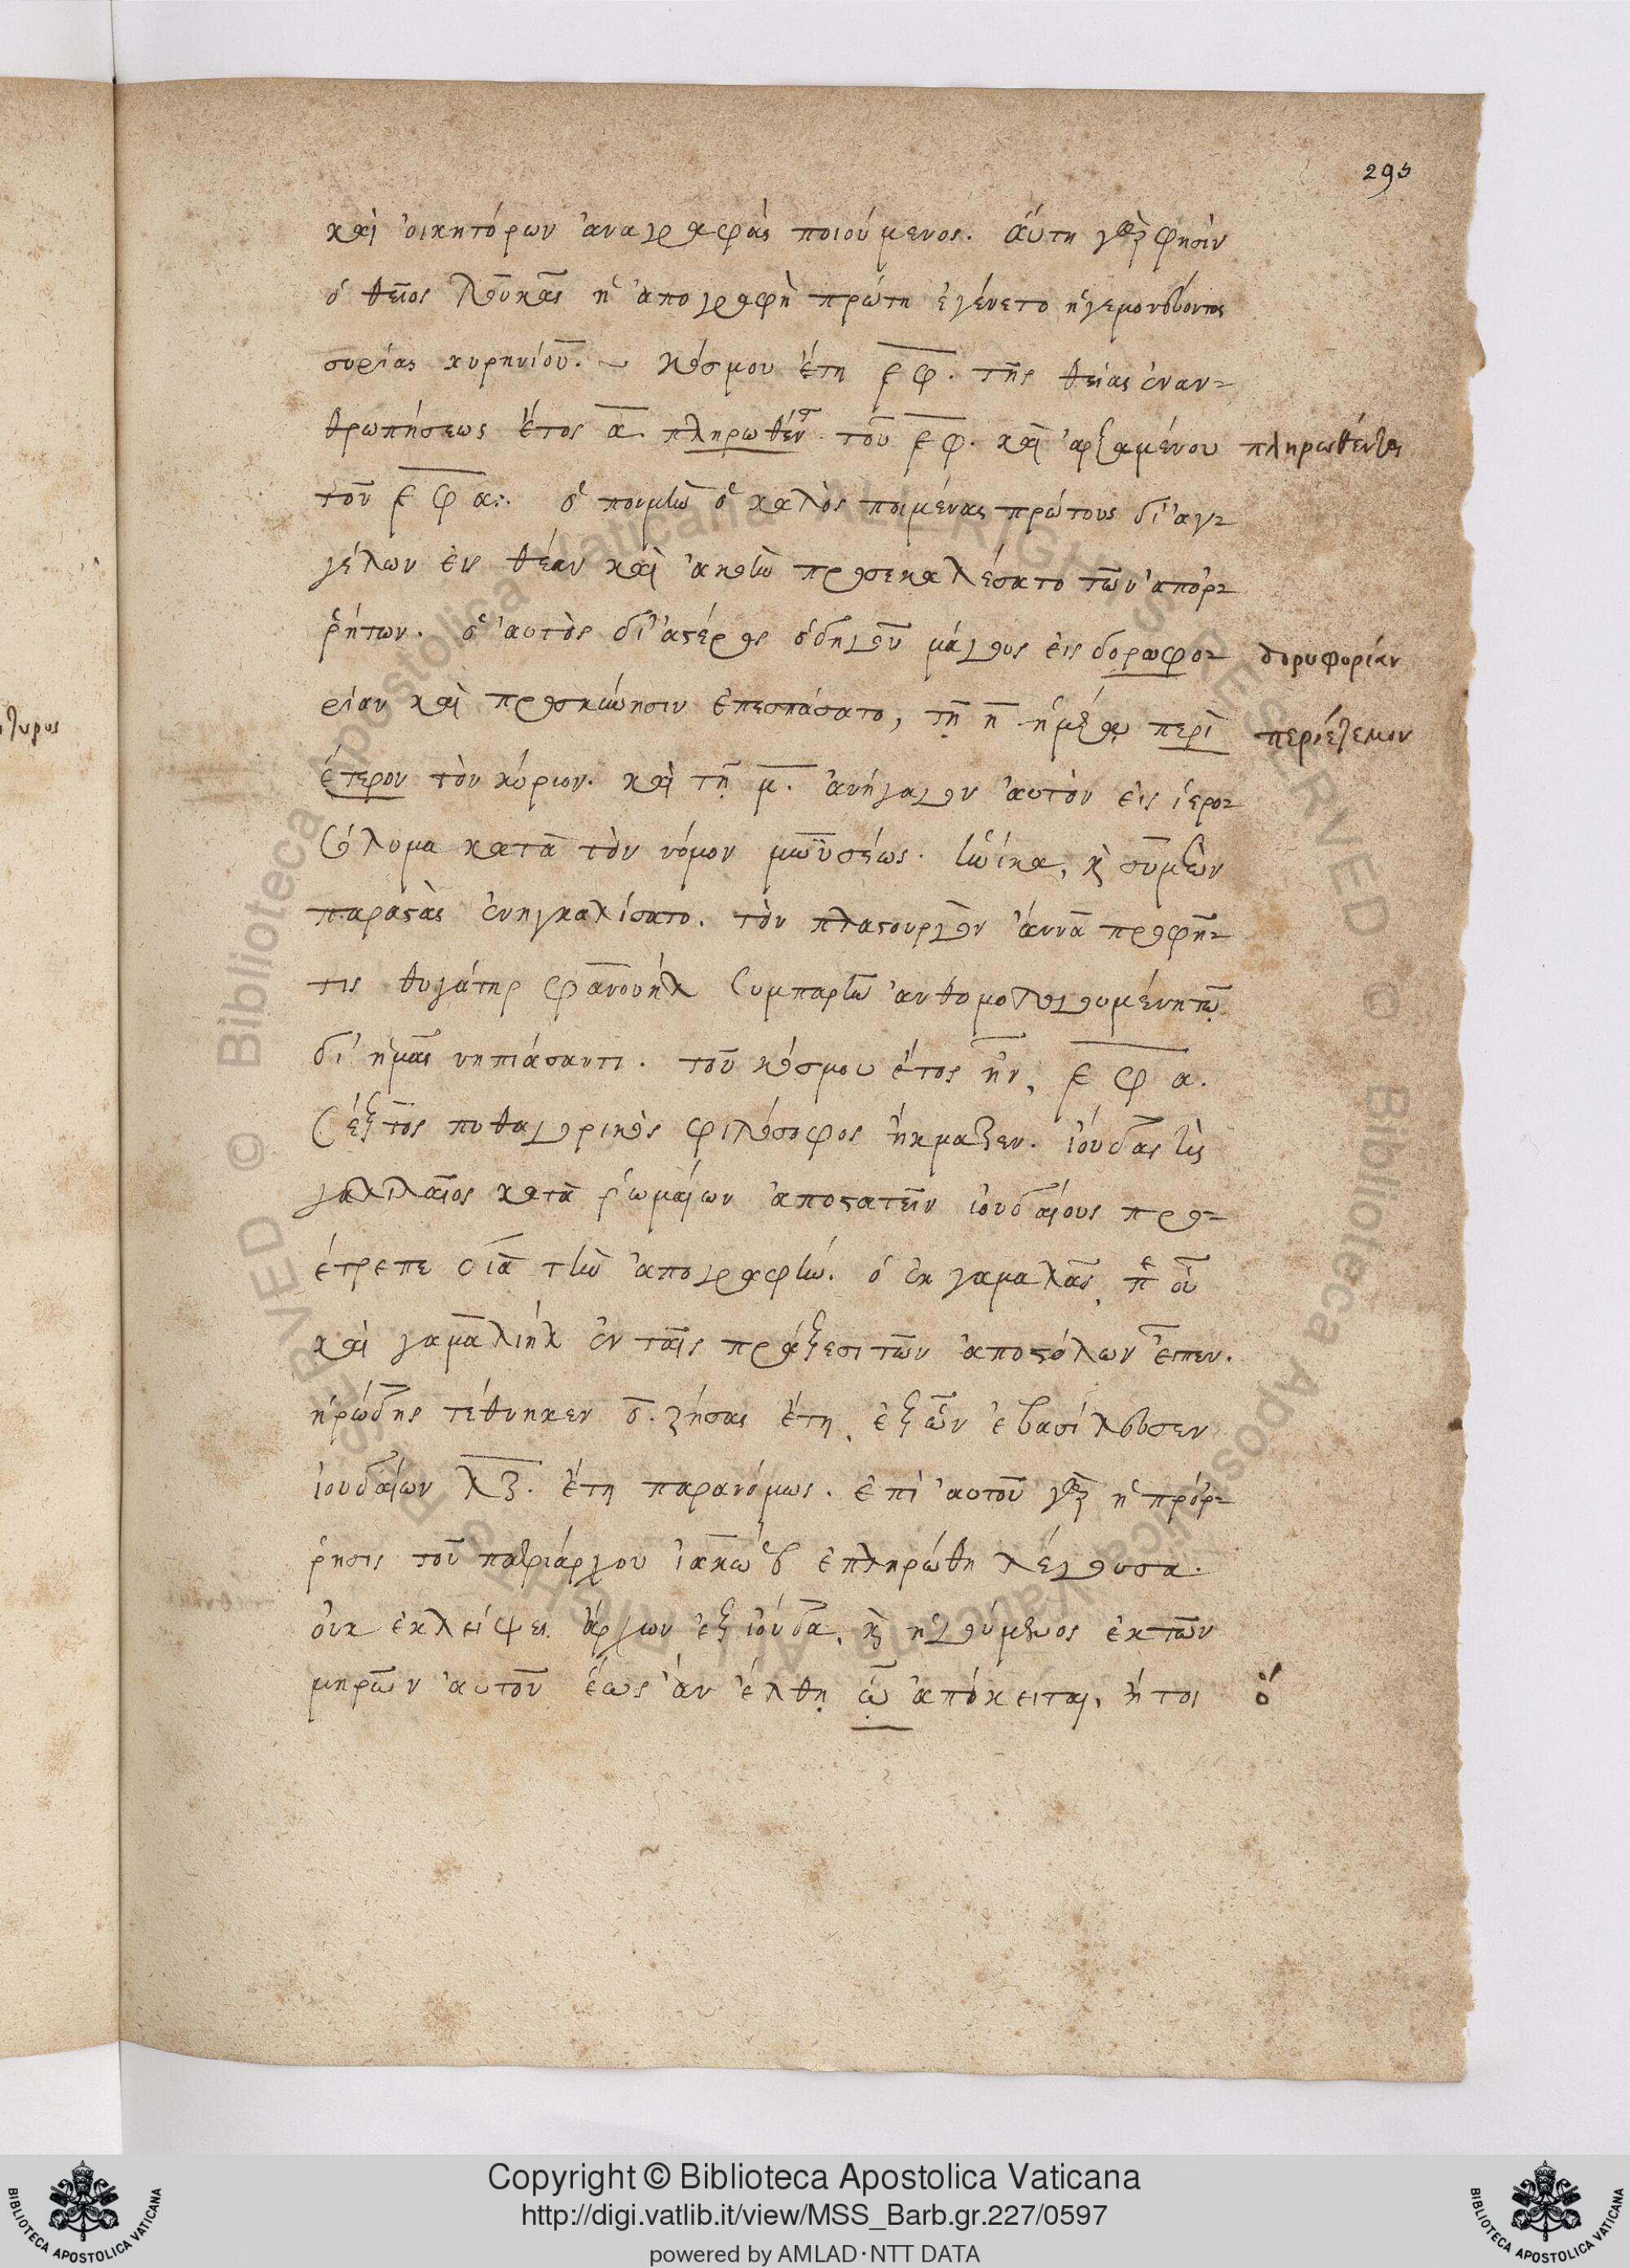 295
καὶ οἰκητόρων ἀναγραφὰς ποιούμενος. αὕτη γὰρ φησὶν
ὁ θεῖος λουκᾶς ἡ ἀπογραφὴ πρώτη ἐγένετο ἡγεμονεύοντος
συρίας κυρηνίου. ~ κόσμου ἔτη ͵εφ. τῆς θείας ἐναν-
θρωπήσεως ἔτος α. πληρωθέν τοῦ ͵εφ. καὶ ἀρξαμένου πληρωθέντος
τοῦ ͵εφα :. ὁ ποιμὴν ὁ καλὸς ποιμένας πρώτους δι' ἀγ-
γέλων εἰς θέαν καὶ ἀκοὴν προσεκαλέσατο τῶν ἀπορ-
ρήτων. ὁ αὐτὸς δι' ἀστέρος ὁδηγοῦν μάγους εἰς δορωφο- δορυφορίαν
ρίαν καὶ προσκύνησιν ἐπεσπάσατο, τῇ η ἡμέρᾳ περὶ περιέτεμον
έτερον τὸν κύριον. καὶ τῇ μ. ἀνήγαγον αὐτὸν εἰς ἱερο-
σόλυμα κατὰ τὸν νόμον μωϋσέως. , κ συμεὼν
παραστὰς ἐνηγκαλίσατο. τὸν πλαστουργὸν ἄννα προφῆ-
τις θυγάτηρ φανουὴλ συμπαρῆν ἀνθομολογουμένη τῷ
δι' ἡμᾶς νηπιάσαντι. τοῦ κόσμου ἔτος ἦν, ͵εφα.
σέξτος πυθαγορικὸς φιλόσοφος ἤκμαζεν. ἰούδας τὶς
γαλιλαῖος κατὰ ῥωμαίων ἀποστατεῖν ἰουδαίους προ-
έτρεπε διὰ τὴν ἀπογραφήν. ὁ ἐκ γαμαλᾶς, π οὗ
καὶ γαμαλιὴλ ἐν ταῖς πράξεσι τῶν ἀποστόλων εἶπεν.
ἡρώδης τέθνηκεν ο. ζήσας ἔτη, ἐξ ὧν ἐβασίλευσεν
ἰουδαίων λζ. ἔτη παρανόμως. ἐπὶ αὐτοῦ γὰρ ἡ πρόρ-
ρησις τοῦ πατριάρχου ἰακὼβ ἐπληρώθη λέγουσα.
οὐκ ἐκλείψει ἄρχων ἐξ ἰούδα, κ ἡγούμενος ἐκ τῶν
μηρῶν αὐτοῦ ἕως ἂν ἔλθῃ ᾧ ἀπόκειται, ἤτοι ὅ
Copyright © Biblioteca Apostolica Vaticana
http://digi.vatlib.it/view/MSS_Barb.gr.227/0597
powered by AMLAD·NTT DATA